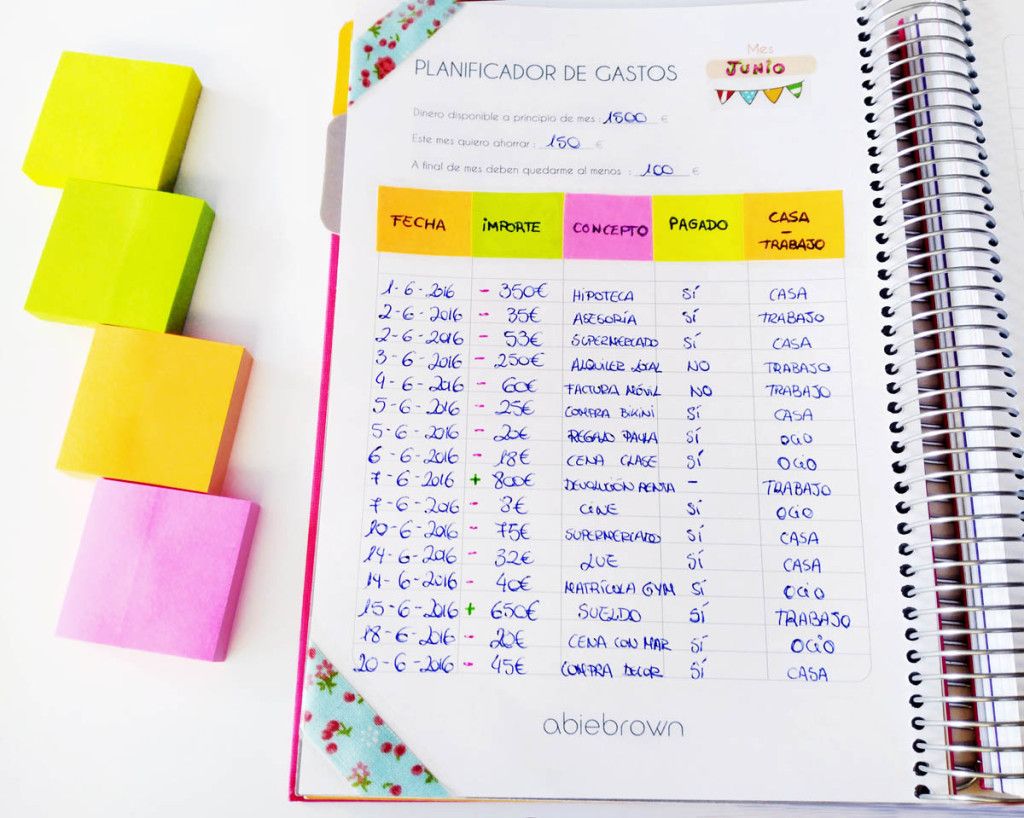 Mes
PLANIFICADOR DE GASTOS JUNIO
Dinero disponible a principio de mes : 1500 €
Este mes quiero ahorrar : 150 €
A final de mes deben quedarme al menos : 100 €
FECHA IMPORTE CONCEPTO PAGADO CASA - TRABAJO
1-6-2016 - 350€ HIPOTECA SÍ CASA
2-6-2016 - 35€ ASESORÍA SÍ TRABAJO
2-6-2016 - 53€ SUPERMERCADO SÍ CASA
3-6-2016 - 250€ ALQUILER LOCAL NO TRABAJO
4-6-2016 - 60€ FACTURA MÓVIL NO TRABAJO
5-6-2016 - 25€ COMPRA BIKINI SÍ CASA
5-6-2016 - 20€ REGALO PAULA SÍ OCIO
6-6-2016 - 18€ CENA CLASE SÍ OCIO
7-6-2016 + 800€ DEVOLUCIÓN RENTA - TRABAJO
7-6-2016 - 8€ CINE SÍ OCIO
10-6-2016 - 75€ SUPERMERCADO SÍ CASA
14-6-2016 - 32€ LUZ SÍ CASA
14-6-2016 - 40€ MATRÍCULA GYM SÍ OCIO
15-6-2016 + 650€ SUELDO SÍ TRABAJO
18-6-2016 - 20€ CENA CON MAR SÍ OCIO
20-6-2016 - 45€ COMPRA DECOR SÍ CASA
abiebrown